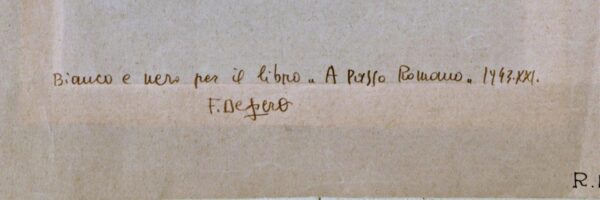 Bianco e nero per il libro „ A Passo Romano „ 1943-XXI.
F. Depero
R.